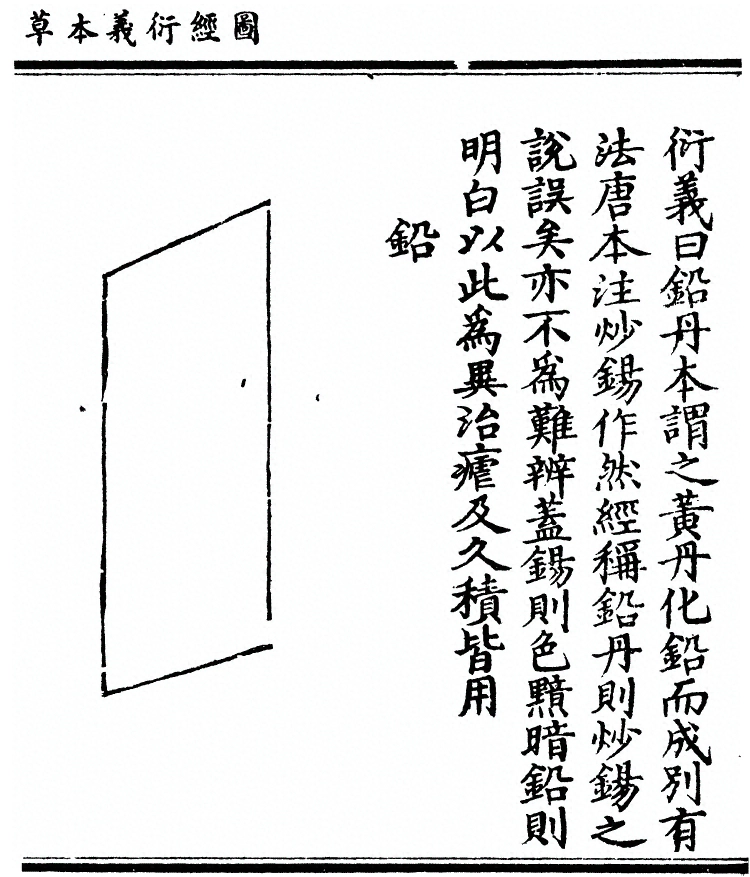 圖經衍義本草
衍義曰鉛丹本謂之黃丹化鉛而成別有
法唐本注炒錫作然經稱鉛丹則炒錫之
說誤矣亦不爲難辨蓋錫則色黰暗鉛則
明白以此爲異治瘧及久積皆用
鉛